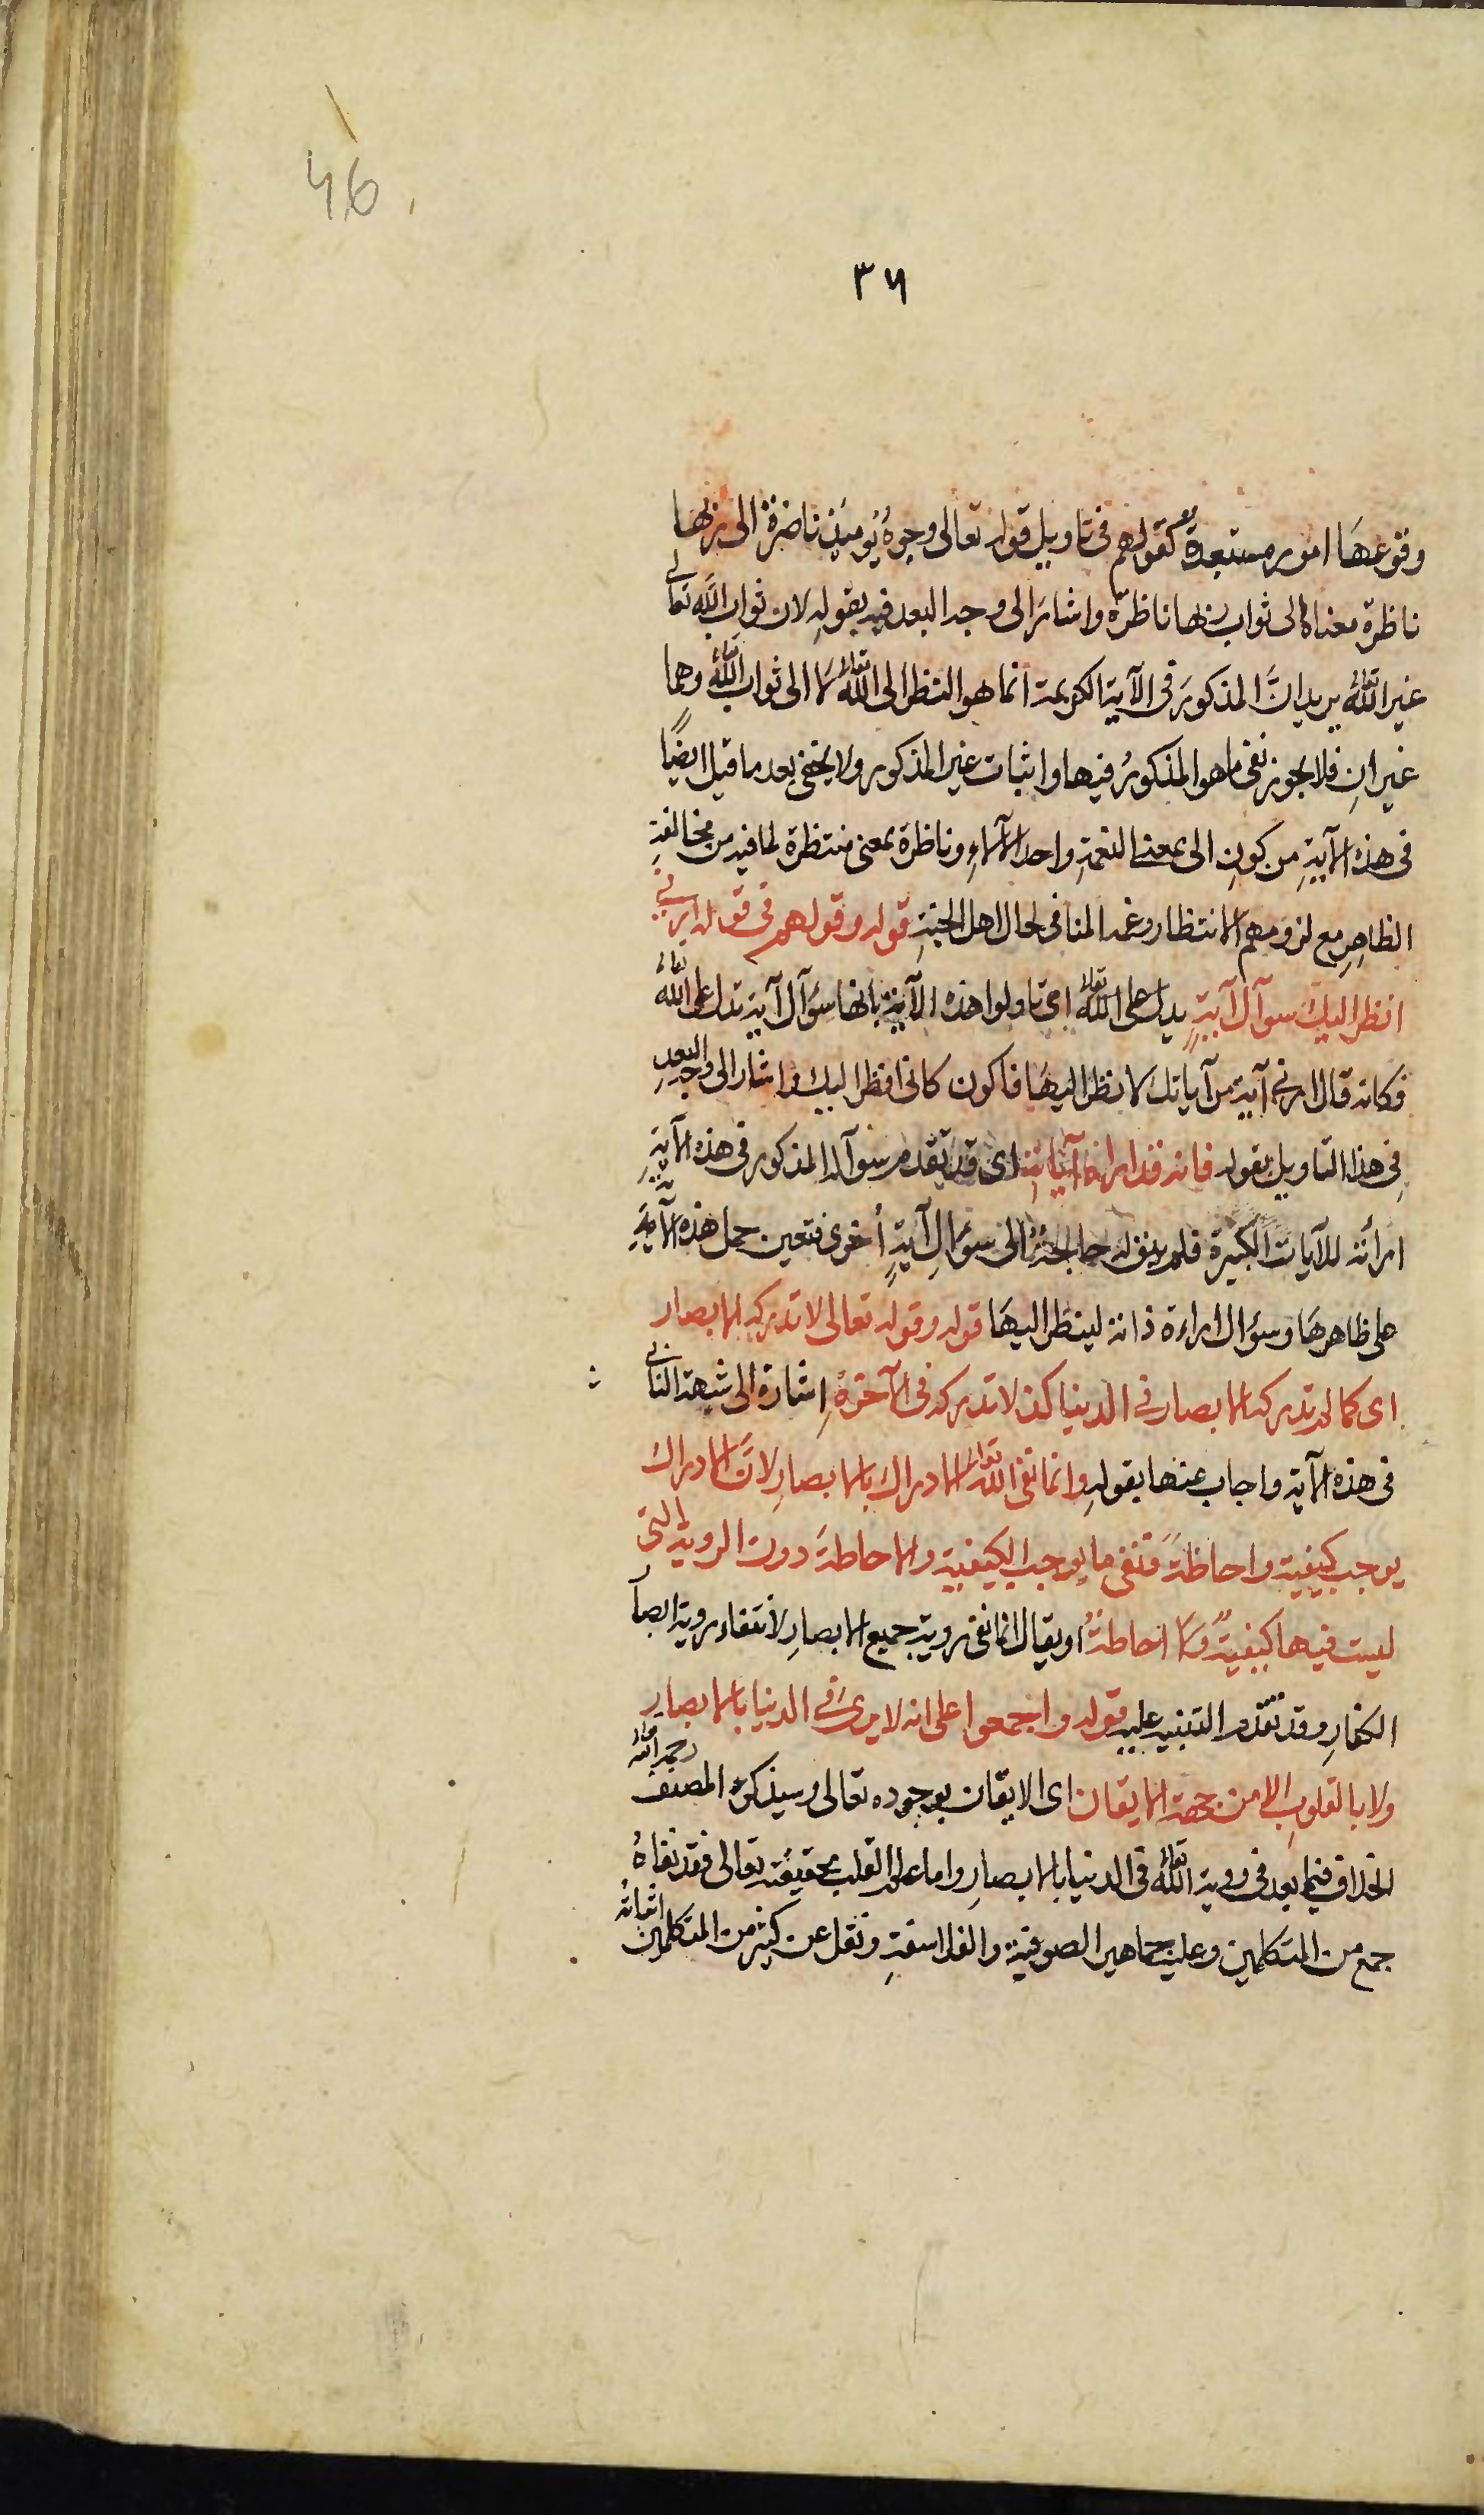 46
٣٦
وقوعهَا امور مستبعدة كقولهم فى تاويل قوله تعالى وجوهُ يُومئذٍ ناضرة الى ربها
ناظرة معناه الى ثواب ربها ناظرة واشارَ الى وجه البعد فيه بقولهِ لان ثواب اللّه تعالى
غير اللّه تعالى يريد انَّ المذكورَ فى الآية الكريمة انما هو النظر الى اللّه تعالى لا الى ثواب اللّه تعالى وهما
غيرانِ فلا يجوز نفى ما هو المذكورُ فيها واثبات غير المذكور ولا يخفى بعد ما قيل ايضًا
فى هذه الآيةِ من كونِ الى بمعنى النعمةِ واحد الآلاءِ وناظرة بمعنى منتظرة لما فيه من مخالفةِ
الظاهِرِ مع لزومهم الانتظار وغمه المنافى لحال اهل الجنةِ قوله وقولهم فى قوله ارنى
انظر اليك سوآل آيةٍ يدل على اللّه تعالى اى تاولوا هذه الآيةَ بانها سؤآل آية تدل على اللّه تعالى
فكانه قال ارنى آية من آياتك لانظر اليهَا فاكون كانى انظر اليك واشار الى وجه البعدِ
فِى هذا التاويل بقوله فانه قد اراه آياته اى قد تقدم سوآله المذكور فى هذه الآيةِ
اراٰته للآيات الكبيرة فلم يبق له حاجةُ الى سؤالِ آيةٍ اُخرى فتعين حمل هذه الآيةِ
على ظاهرهَا وسؤال اراءة ذاته لينظر اليهَا قوله وقوله تعالى لا تدركه الابصار
اى كما لم تدركه الابصار فى الدنيا كذا لا تدركه فى الآخرةِ اِشارة الى شبهة النافى
فى هذه الآية واجاب عنها بقولهِ وانما نفى اللّه تعالى الادراك بالابصارِ لانَّ الادراك
يوجب كيفية واحاطةً فنفى ما يوجب الكيفية والاحاطةَ دون الروية التى
ليست فيها كيفيةٌ ولا احاطةُ او يقال انما نفى روية جميع الابصارِ لانتفاء روية ابصار
الكفارِ وقد تقدم التنبيه عليه قوله واجمعوا على انه لا يرى فى الدنيا بالابصارِ
ولا بالقلوبِ الا من جهة الايقان اى الايقان بوجوده تعالى وسيذكر المصنف رحمه اللّه تعالى
الخلاف فيما بعد فى روية اللّه تعالى فى الدنيا بالابصارِ واما علم القلب بحقيقته تعالى فقد نفاهُ
جمع من المتكلمين وعليه جماهير الصوفية والفلاسفةِ ونقل عن كثير من المتكلمين اثباتُه